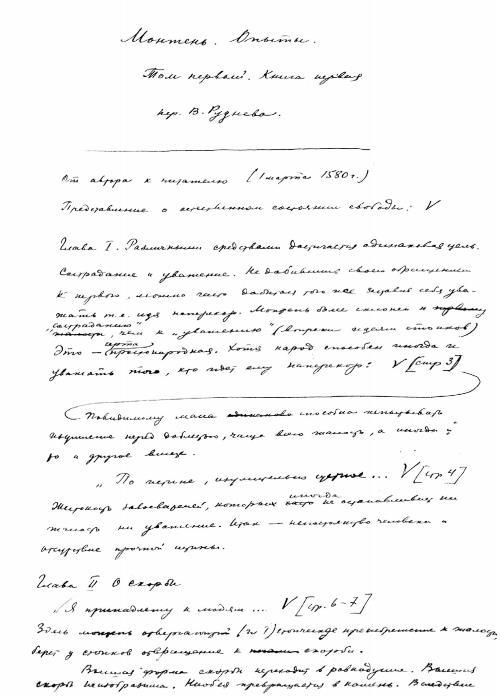 Монтень. Опыты.
Том первый. Книга первая
пер. В. Руднева.
От автора к читателю (1 марта 1580 г.)
Представление о естественном состоянии свободы: V
Глава I. Различными средствами достигается одинаковая цель.
Сострадание и уважение. Не добившись своим обращением
к первому, можно часто добиться того же заставив себя ува-
жать т.е. идя наперекор. Монтень более склонен к
"состраданию", чем к "уважению" (вопреки идеям стоиков)
Это — черта простонародная. Хотя народ способен иногда и
уважать того, кто идет ему наперекор: V [стр 3]
Повидимому масса способна испытывать
изумление перед доблестью, чаще всего жалость, а иногда и
то и другое вместе.
"По истине, изумительно ... V [стр 4]
Жестокость завоевателей, которых иногда не останавливает ни
жалость ни уважение. Итак — непостоянство человека и
отсутствие прочной истины.
Глава II О скорби
"Я принадлежу к людям ... V [стр. 6-7]
Здесь отвергнутый (гл 1) стоическое пренебрежение к жалости,
берет у стоиков отвращение к скорби.
Высшая форма скорби переходит в равнодушие. Высшая
скорбь неизобразима. Ниобея превращается в камень. Вследствие